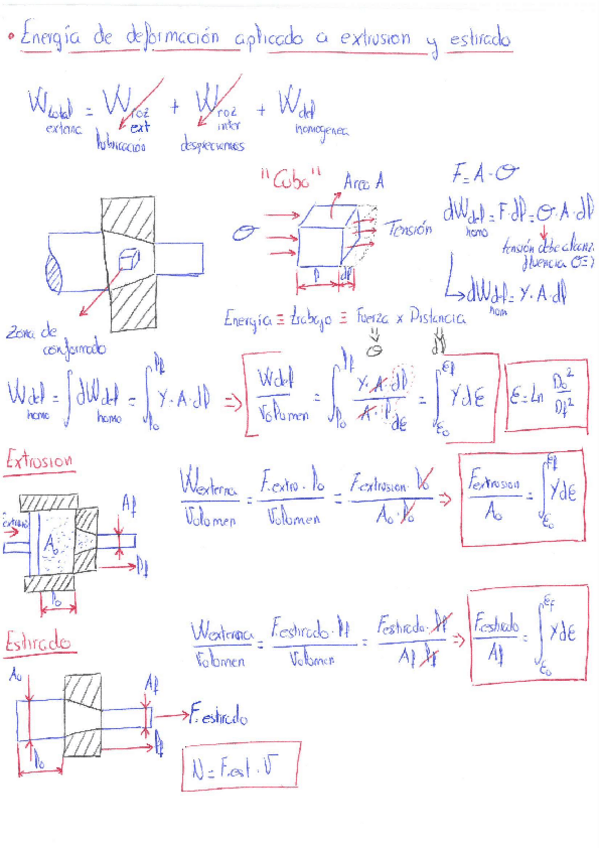 • Energía de deformación aplicado a extrusion y estirado
W total externa = W roz ext + W roz inter + W def homogenea
lubricación despreciamos
"Cubo" Area A
F = A · σ
σ Tensión
dW def homo = F·dl = σ·A·dl
l dl
tensión debe alcanz
fluencia
dW def hom = Y·A·dl
Zona de conformado
Energía ≡ trabajo ≡ Fuerza x Distancia
σ dl
W def homo = ∫ dW def homo = ∫ l₀ lf Y·A·dl ⇒ W def / Volumen = ∫ l₀ lf Y·A·dl / A·l = ∫ ε₀ εf Y dε
dε
ε = Ln D₀² / Df²
Extrusion
W externa / Volumen = F.extru · l₀ / Volumen = F.extrusion · l₀ / A₀ · l₀ ⇒ F.extrusion / A₀ = ∫ ε₀ εf Y dε
A₀ Af
lf
l₀
Estirado
W externa / Volumen = F.estirado · lf / Volumen = F.estirado · lf / Af · lf ⇒ F.estirado / Af = ∫ ε₀ εf Y dε
A₀ Af
F.estirado
l₀ lf
N = F.est · V